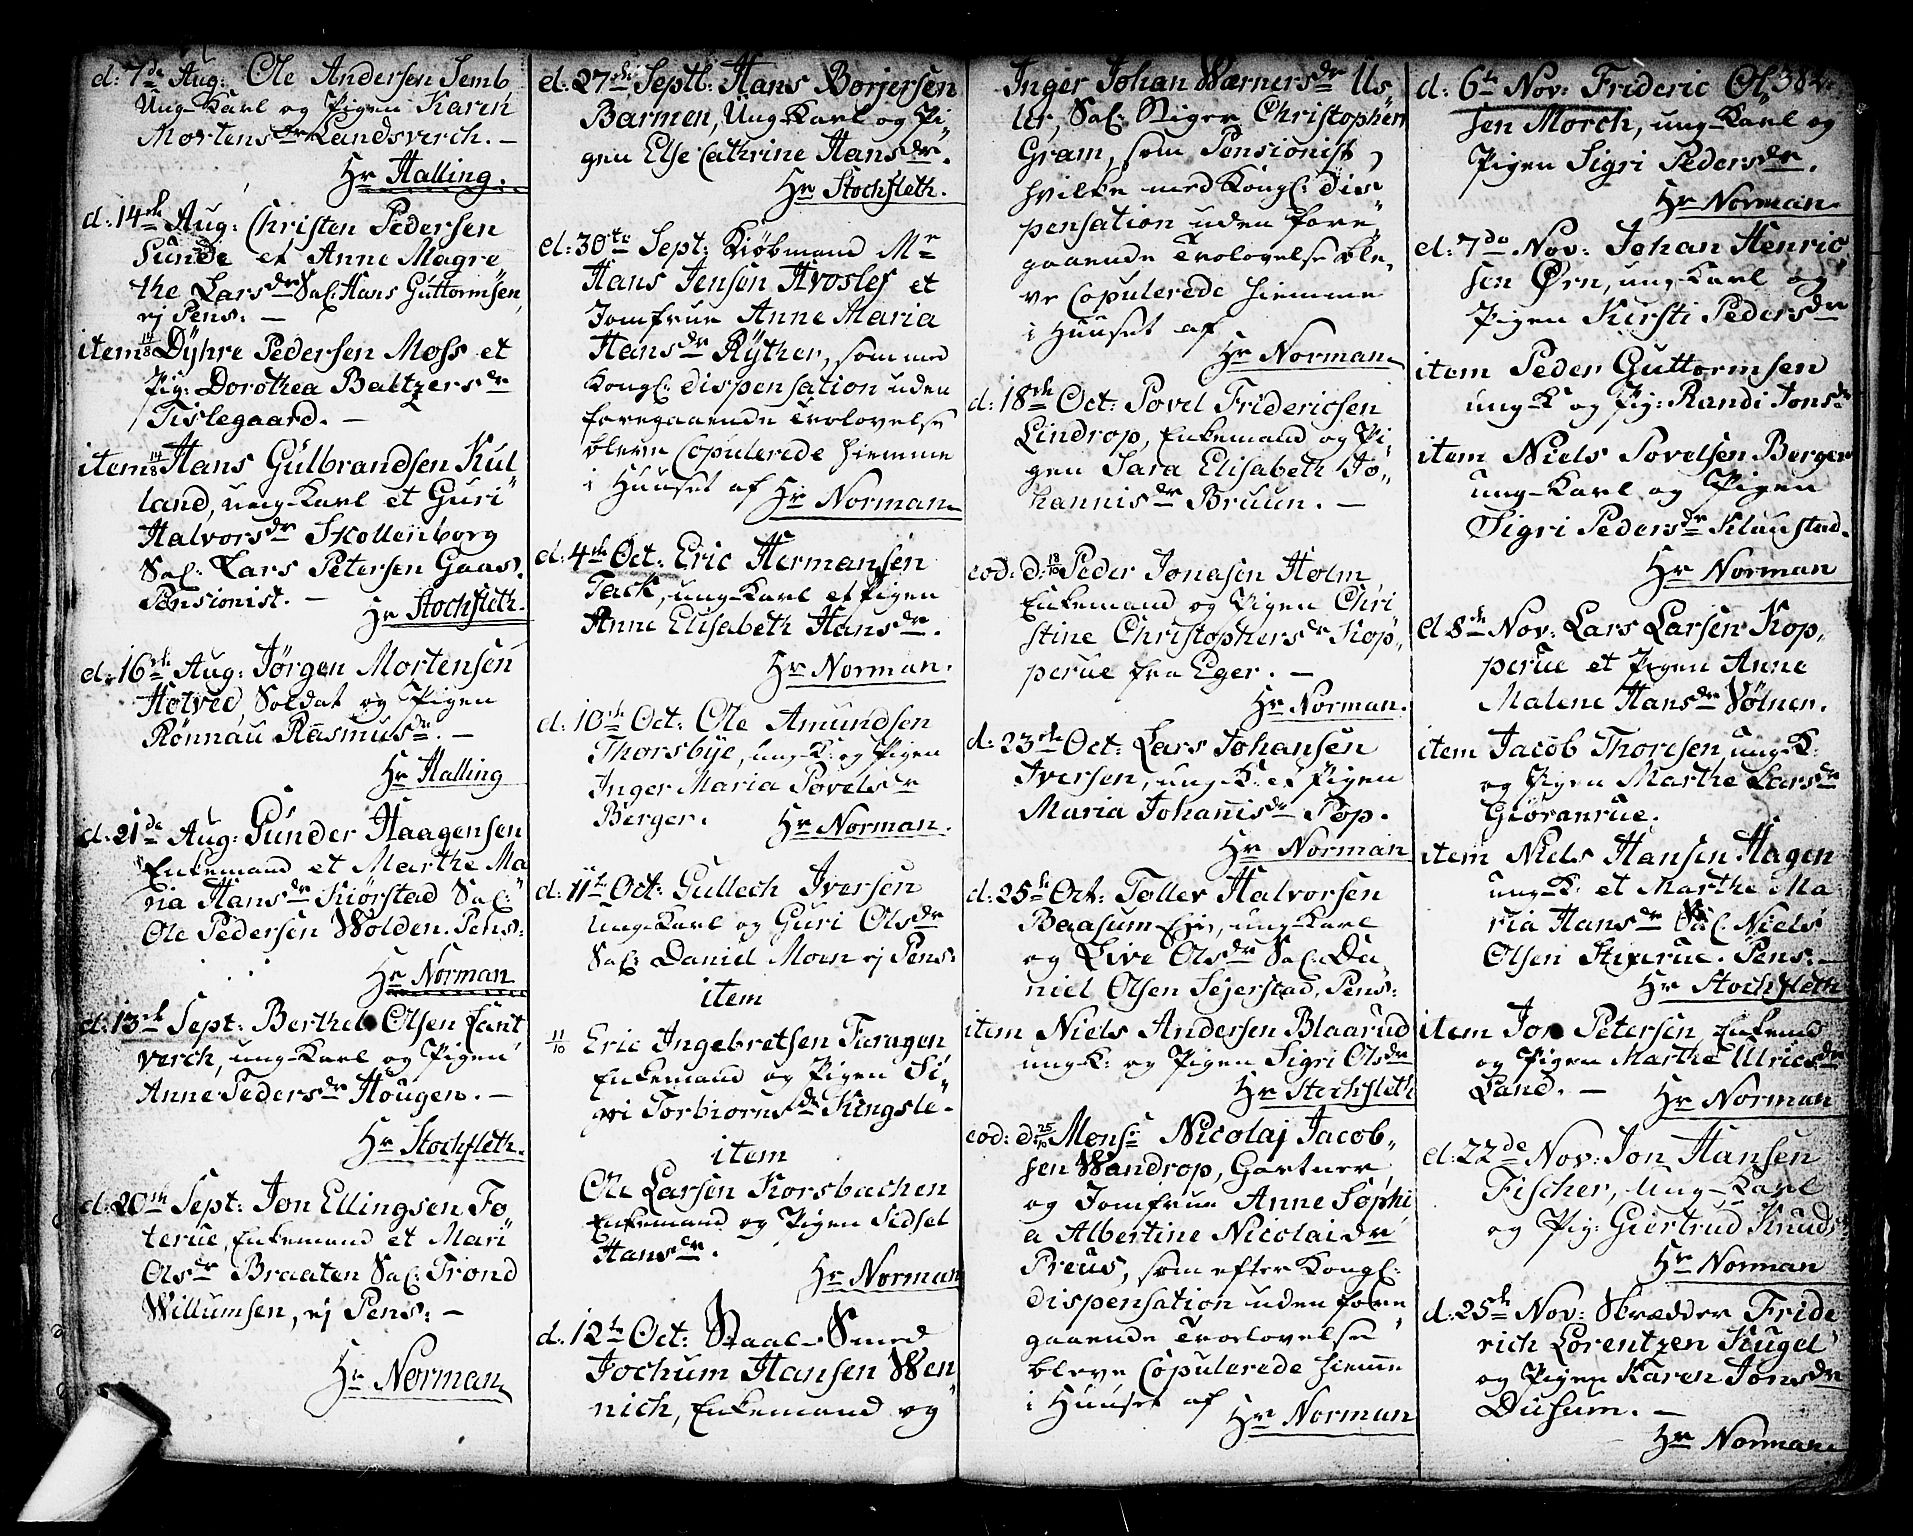 d: 7de Aug: Ole Andersen Semb,
Ung-Karl og Pigen Karen
Mortensdr Landsverch. —
Hr Halling.
d: 14de Aug: Christen Pedersen
Sunde et Anne Magre
the Larsdr Sal: Hans Guttormsen,
ej Pens: —
item 14/8 Dyhre Pedersen Moss et
Pig: Dorothea Baltzersdr
Tislegaard. —
item 14/8 Hans Gulbrandsen Kul
land, ung-Karl et Guri
Halvorsdr Skollenborg
Sal: Lars Petersen Gaas.
Pensionist. —
Hr Stochfleth.
d: 16de Aug: Jørgen Mortensen
Hotved, Soldat og Pigen
Rönnau Rasmusdr. —
Hr Halling
d: 21de Aug: Gunder Haagensen
Enkemand et Marthe Ma
ria Hansdr Kiørstad Sal:
Ole Pedersen Wolden. Pens:
Hr Norman
d: 13de Sept: Berthel Olsen Sant
verch, ung-Karl og Pigen
Anne Pedersdr Hougen. —
Hr Stochfleth.
d: 20de Sept: Jon Ellingsen Fo
terue, Enkemand et Mari
Olsdr Braaten Sal: Trond
Willumsen, ej Pens: —
Hr Norman
d: 27de Septb: Hans Borjersen
Barmen, Ung-Karl og Pi
gen Else Cathrine Hansdr.
Hr Stochfleth.
d: 30te Sept: Kiøbmand Mr
Hans Jensen Hvoslef et
Jomfrue Anne Maria
Hansdr Ryther, som med
Kongl: dispensation uden
foregaaende Trolovelse
bleve Copulerede hiemme
i Huuset af Hr Norman
d: 4de Oct: Eric Hermansen
Teck, ung-Karl et Pigen
Anne Elisabeth Hansdr.
Hr Norman.
d: 10de Oct: Ole Amundsen
Thorsbye, ung K: og Pigen
Inger Maria Povelsdr
Berger. Hr Norman.
d: 11te Oct: Gullech Iversen
ung-Karl og Guri Olsdr
Sal: Daniel Moen ej Pens:
item
11/10 Eric Ingebretsen Faragen
Enkemand og Pigen Si,
gri Torbiornsdr Kingsle.
item
Ole Larsen Korsbachen
Enkemand og Pigen Sidsel
Hansdr.
Hr Norman
d: 12te Oct: Staal-Smed
Jochum Hansen Wen
nich, Enkemand og
Inger Johan Wærnersdr Us
ler, Sal: Stiger Christopher
Gram, som Pensionist,
hvilke med Kongl: dis
pensation uden fore,
gaaende Trolovelse ble,
ve Copulerede hiemme
i Huuset af
Hr Norman
d: 18de Oct: Povel Fridericsen
Lindrop, Enkemand og Pi,
gen Sara Elisabeth Jo,
hannisdr Bruun. —
eod: d: 18/10 Peder Jonasen Holm,
Enkemand og Pigen Chri
stine Christophersdr Kop,
perue fra Eger. —
Hr Norman.
d: 23de Oct: Lars Johansen
Iversen, ung-K: et Pigen
Maria Johanisdr Pop.
Hr Norman
d: 25de Oct: Tollev Halvorsen
Baasum Eje, ung-Karl
og Live Olsdr Sal: Da
niel Olsen Sejerstad, Pens:
item Niels Andersen Blaarud
ung K: og Pigen Sigri Olsdr
Hr Stochfleth
eod: d: 25/10 Monsr Nicolaj Jacob,
sen Wandrop, Gartner
og Jomfrue Anne Sophi
a Albertine Nicolaidr
Preus, som efter Kongl:
dispensation uden fore
gaaende Trolovelse
bleve Copulerede hiemme
i Huuset af Hr Norman
d: 6te Nov: Frideric Ol 384.
sen Morch, ung-Karl og
Pigen Sigri Pedersdr.
Hr Norman.
d: 7de Nov: Johan Henric
sen Ørn, ung-Karl og
Pigen Kirsti Pedersdr
item Peder Guttormsen
ung-K og Pig: Randi Jonsdr
item Niels Povelsen Berger
ung-Karl og Pigen
Sigri Pedersdr Klunstad.
Hr Norman
d: 8de Nov: Lars Larsen Kop,
perue et Pigen Anne
Malene Hansdr Völner.
item Jacob Thoresen, ung-K:
og Pigen Marthe Larsdr
Giöranrue.
item Niels Hansen Hagen
ung K: et Marthe Ma
ria Hansdr Sal: Niels
Olsen Stixrue. Pens: —
Hr Stochfleth
item Jon Petersen, Enkemd
og Pigen Marthe Ulricsdr
Land. — Hr Norman
d: 22de Nov: Jon Hansen
Fischer, Ung-Karl
og Pig: Giertrud Knuds
Hr Norman
d: 25de Nov: Skrædder Fride
rich Lorentzen Kugel
og Pigen Karen Jonsdr
Dusum. —
Hr Norman